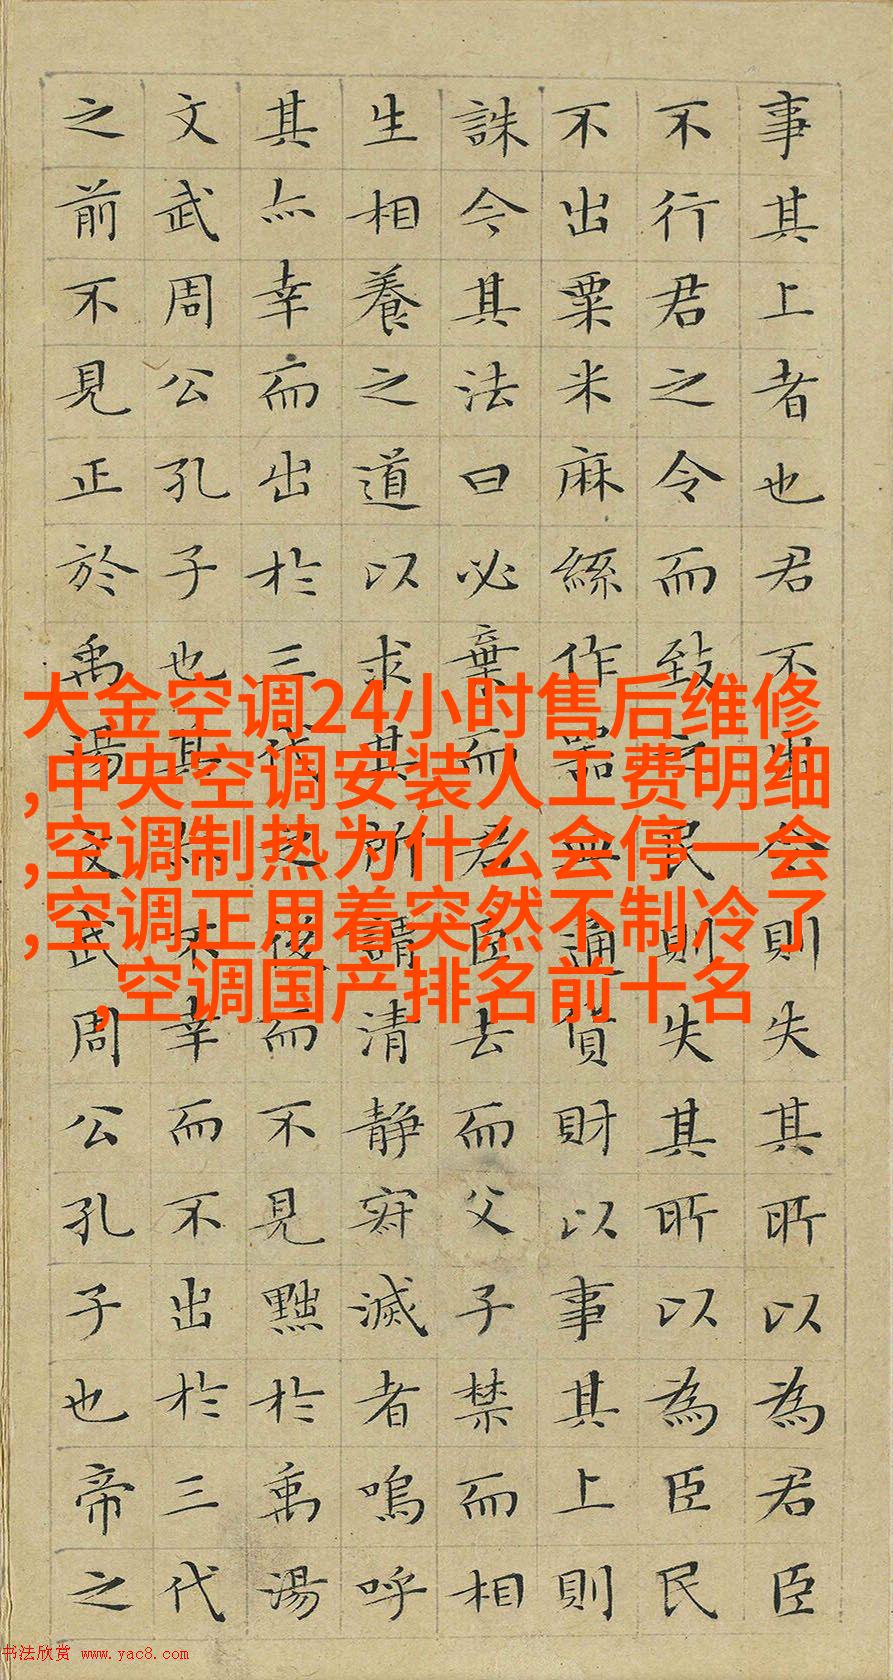 事其上者也君不出令則失其所以為君臣
不行君之令而致之民則失其所以為臣民
不出粟米麻絲作器皿通貨財以事其上則
誅今其法曰必棄而君臣去而父子禁而相
生相養之道以求其所謂清靜寂滅者嗚呼
其亦幸而出於三代之後而不見黜於禹湯
文武周公孔子也其亦不幸而不出於三代
之前不見正於禹湯文武周公孔子也帝之
大金空调24小时售后维修
,中央空调安装人工费明细
,空调制热为什么会停一会
,空调正用着突然不制冷了
,空调国产排名前十名
书法欣赏 www.yac8.com